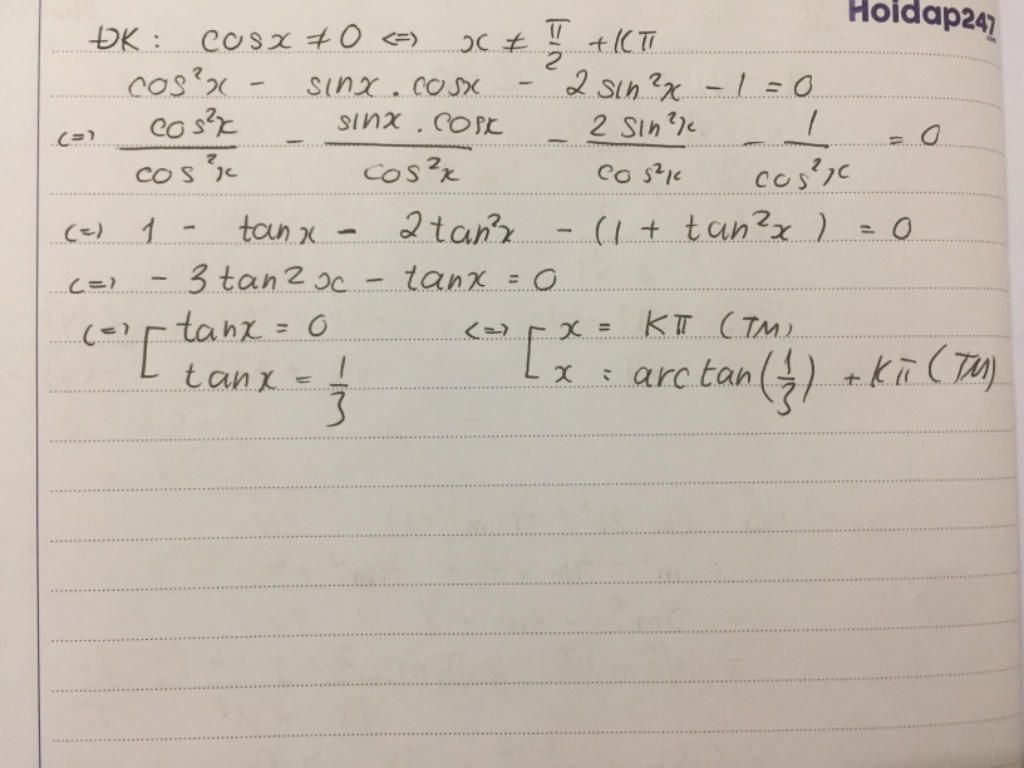 Hoidap247.com
ĐK: cosx ≠ 0 <=> x ≠ π/2 + Kπ
cos²x - sinx . cosx - 2 sin²x - 1 = 0
<=> cos²x/cos²x - sinx . cosx/cos²x - 2 sin²x/cos²x - 1/cos²x = 0
<=> 1 - tanx - 2tan²x - (1 + tan²x) = 0
<=> - 3tan2x - tanx = 0
<=> [ tanx = 0 <=> [ x = Kπ (TM)
tanx = 1/3 x = arctan(1/3) + Kπ (TM)